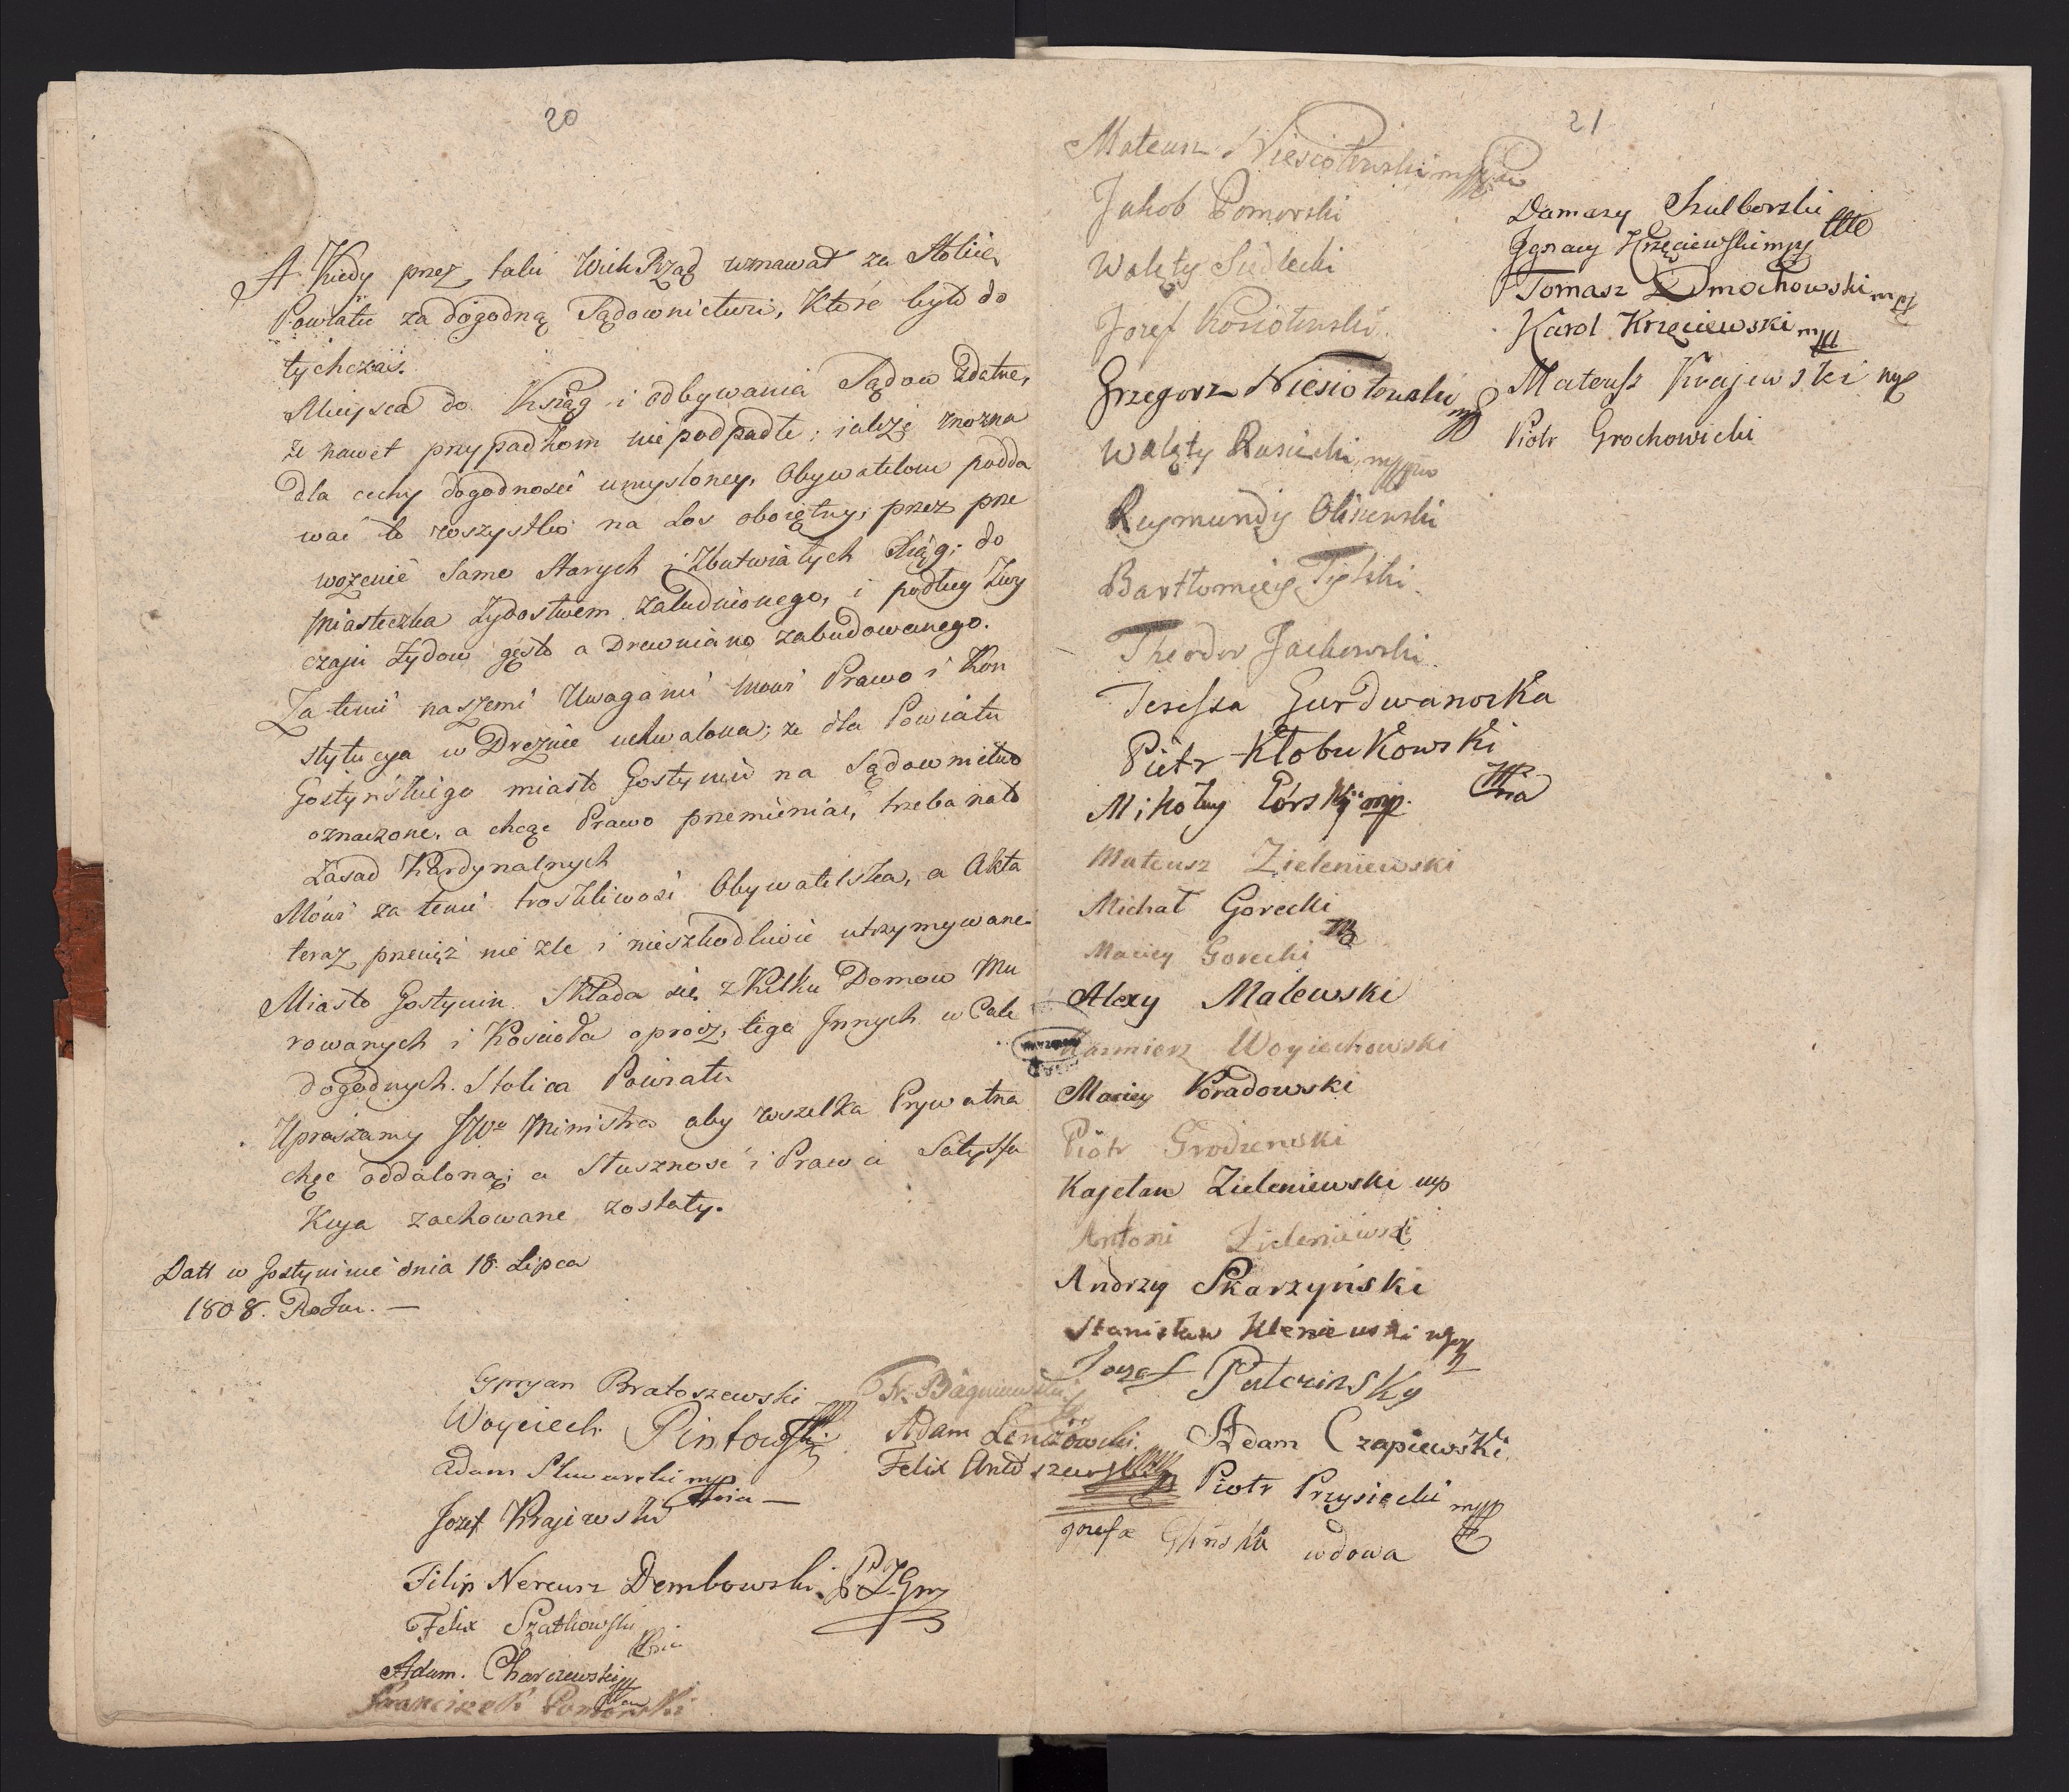 20
A Kiedy przez taki Wiek Rząd uznawał za Stolicę
Powiatu za dogodną Sądownictwu, Które było do
tychczas.
Mieysca do Ksiąg i odbywania Sądow zdatne,
że nawet przypadkom nie podpadłe; iakże można
dla cechy dogodności umysłoney, Obywatelom podda
wać to wszystko na Los oboiętny, przez prze
wożenie same Starych i Zbutwiałych Xiąg; do
Miasteczka Żydostwem zaludnionego, i podług Zwy
czaju Żydow gęsto a Drewniano zabudowanego.
Za temi naszemi Uwagami mowi Prawo i Kon
stytucya w Dreznie uchwalona; że dla Powiatu
Gostyńskiego miasto Gostynin na Sądownictwo
oznaczone, a chcąc Prawo przemieniać, trzeba na to
Zasad Kardynalnych
Mówi za temi troskliwość Obywatelska, a Akta
teraz przecięż nie źle i nieszkodliwie utrzymywane.
Miasto Gostynin Składa się z Kilku Domow Mu
rowanych i Kościoła oprócz tego Innych w Cale
dogodnych. Stolica Powiatu
Upraszamy JWo Ministra aby wszelka Prywatna
chęć oddaloną; a Słuszność i Prawa Satysfa
Kcya zachowane zostały.
Datt w Gostyninie dnia 18. Lipca
1808. Roku. —
Cypryan Bratoszewski
Woyciech Pintowski
Adam Sluwarski mp
Jozef Kraiewski
Filip Nereusz Dembowski
Felix Szatkowski
Adam Charzewski
Franciszek Pomorski
Fr. Bagniewski
Adam
Felix
21
Mateusz Niesiołowski mp
Jakob Pomorski
Walęty Siedlecki
Jozef Kosiołewski
Grzegorz Niesiołowski
Walęty Rusiecki
Raymundy Olszewski
Bartłomiey Tylski
Theodor Jackowski
Teressa Gurdwanoska
Piotr Kłobukowski
Mikołay Górski mp.
Mateusz Zieleniewski
Michał Gorecki
Maciey Gorecki
Alexy Malewski
Kazmierz Woyiechowski
Maciey Poradowski
Piotr Grodzenski
Kajetan Zieleniewski mp
Antoni Zieleniewski
Andrzy Skarzyński
Stanisław Kleniewski
Jozef
Adam Czapiewski.
Piotr Przysiecki
Jozefa Glinska wdowa
Damazy Szulborski
Jgnacy Krzęciewski mp
Tomasz Dmochowski mp
Karol Krzęciewski
Mateusz Krajewski mp
Piotr Grochowicki